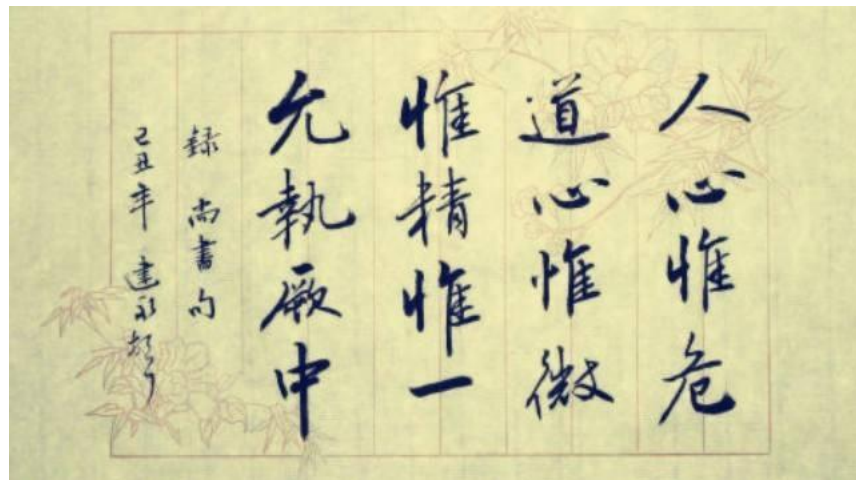 人心惟危
道心惟微
惟精惟一
允執厥中
録 尚書句
己丑年 建